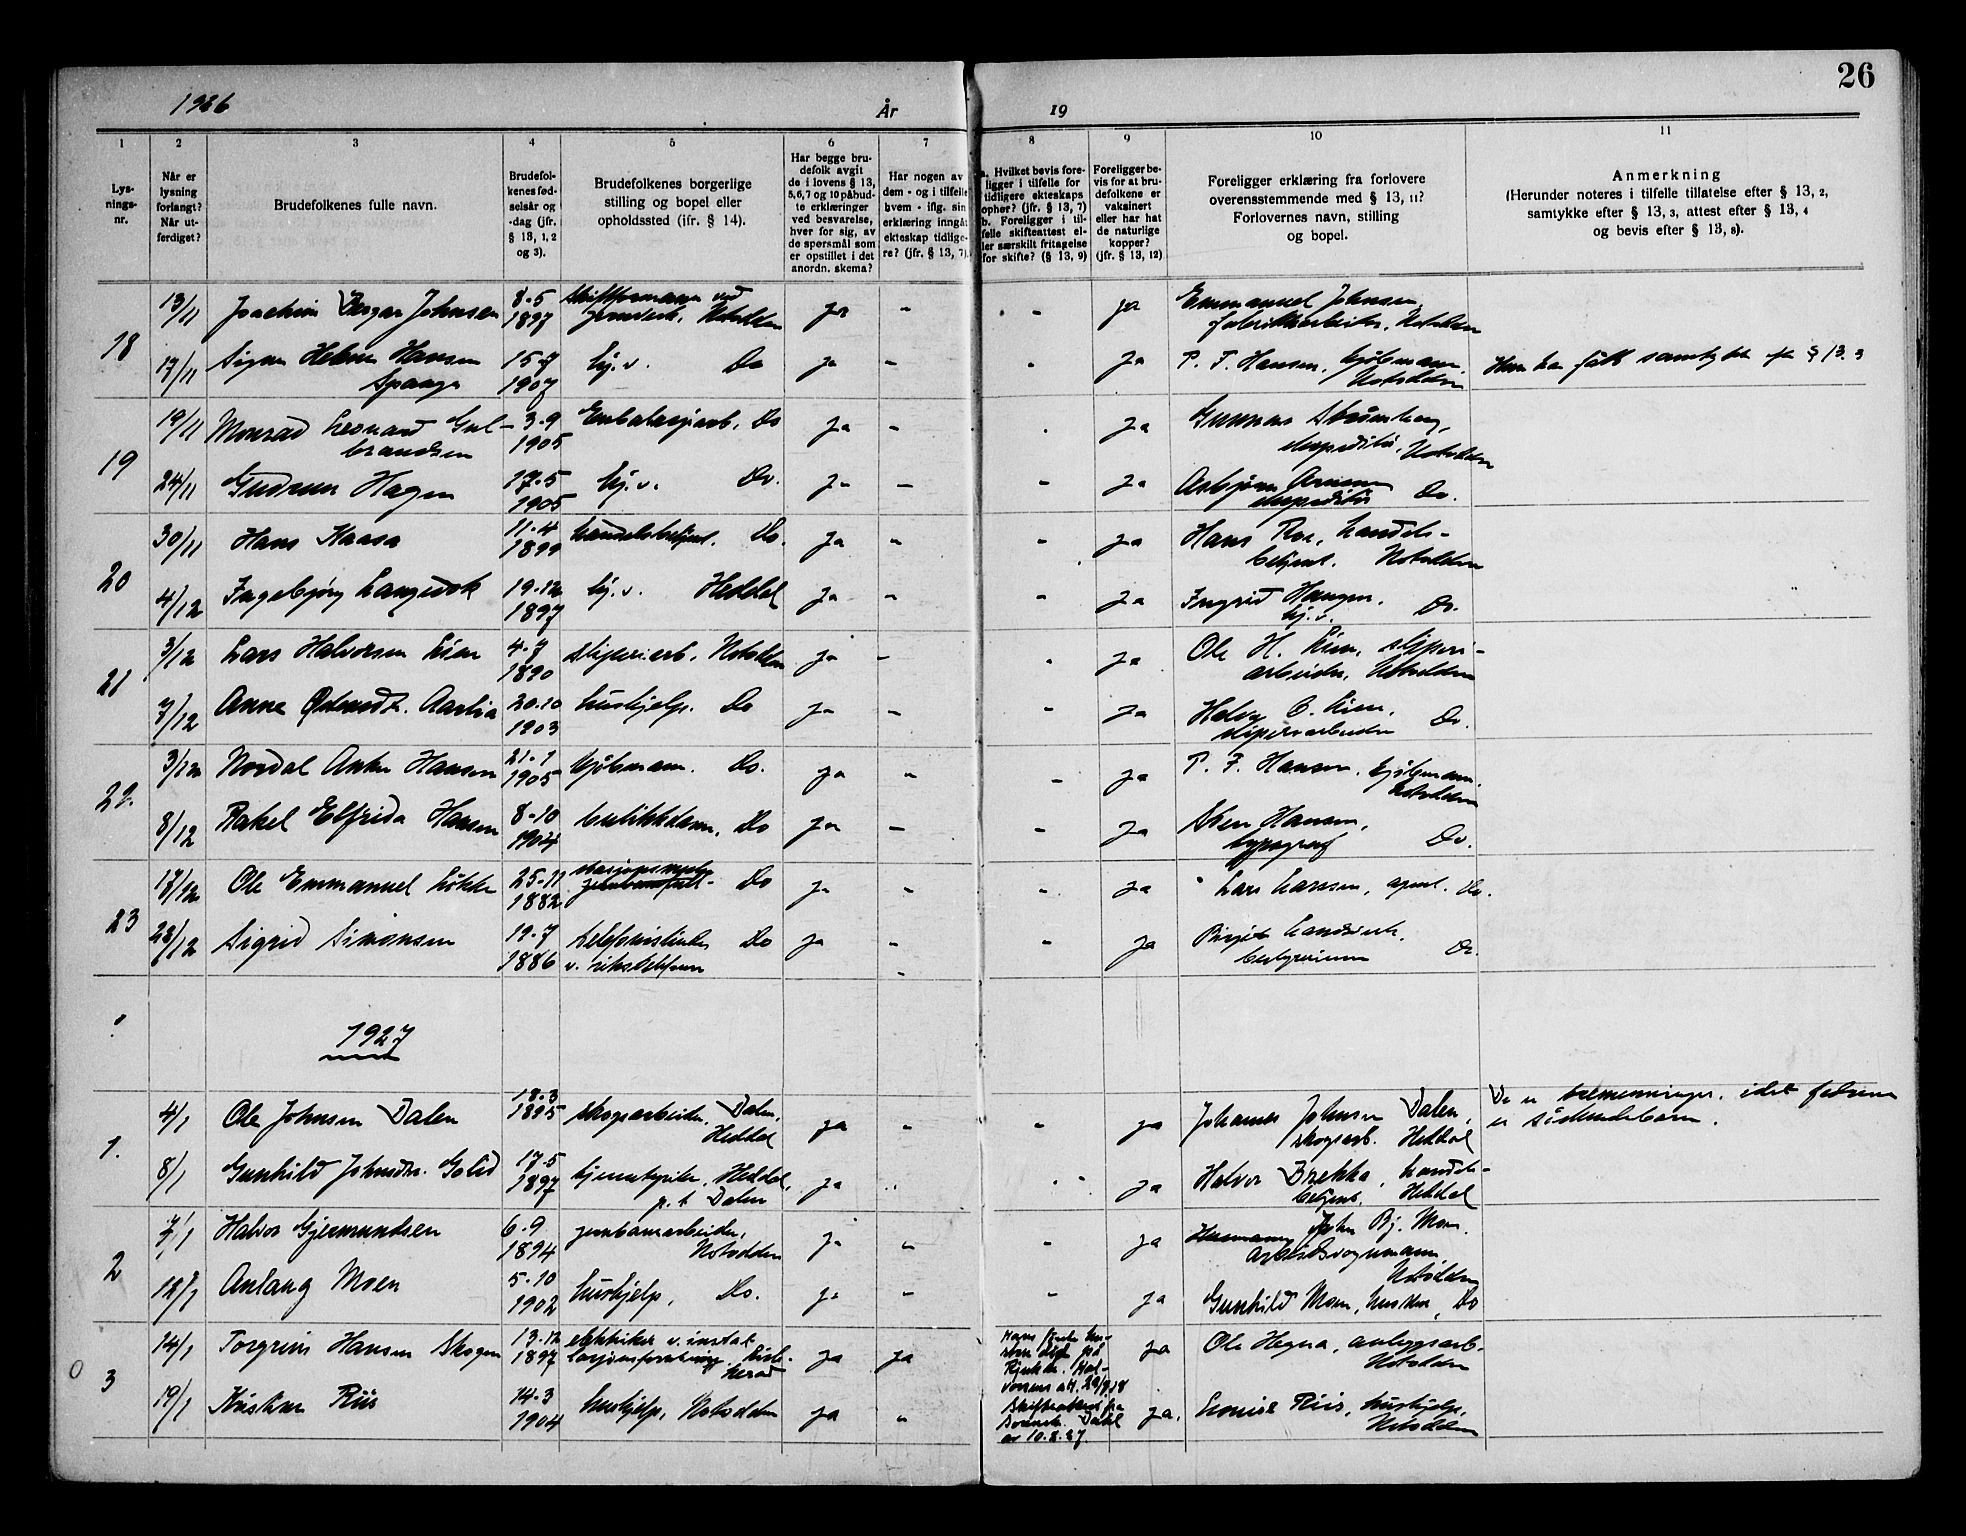 26
1926
År
19
1
2
3
4
5
6
7
8
9
10
11
Lys-
nings-
nr.
Når er
lysning
forlangt?
Når ut-
ferdiget?
Brudefolkenes fulle navn.
Brudefol-
kenes fød-
selsår og
-dag (jfr.
§ 13, 1, 2
og 3).
Brudefolkenes borgerlige
stilling og bopel eller
opholdssted (ifr. § 14).
Har begge bru-
defolk avgit
de i lovens § 13,
5,6,7 og 10 påbud-
te erklæringer
ved besvarelse,
hver for sig, av
de spørsmål som
er opstillet i det
anordn. skema?
Har nogen av
dem - og i tilfelle
hvem - iflg. sin
erklæring inngåt
ekteskap tidlige-
re? (jfr. § 13, 7).
a. Hvilket bevis fore-
ligger i tilfelle for
tidligere ekteskaps
opher? (jfr. § 13, 7)
b. Foreligger i til-
felle skifteattest el-
ler særskilt fritagelse
for skifte? (§ 13, 9)
Foreligger be-
vis for at bru-
defolkene er
vaksinert
eller har hat
de naturlige
kopper?
(jfr. § 13, 12)
Foreligger erklæring fra forlovere
overensstemmende med § 13, 11?
Forlovernes navn, stilling
og bopel.
Anmerkning
(Herunder noteres i tilfelle tillatelse efter § 13, 2,
samtykke efter § 13, 3, attest efter § 13, 4
og bevis efter § 13, 8).
18
13/11 Joachim Johnsen 8-5 1897 Notodden ja - - ja Emmanuel Johnsen,
fabrikkarbeider, Notodden
17/11 Signe Helene Hansen 15-7 1907 hj.v. Do ja - - ja P. F. Hansen, kjøbmann,
Spaage Notodden
Hun har fått samtykke eft § 13.3
19
19/11 Monrad Leonard Gul- 3-9 1905 Embalasjearb. Do ja - - ja Gunnar Strømberg,
brandsen ekspeditør, Notodden
24/11 Gudrun Hagen 17-5 1905 hj.v. Do. ja - - ja Asbjørn
ekspeditør Do.
20
30/11 Hans Kaasa 11-4 1899 handelsbetjent. Do. ja - - ja Hans Roe, handels-
betjent. Notodden
4/12 Ingebjørg Langedok 19-12 1897 hj.v. Heddal ja - - ja Ingrid Haugen.
hj.v. Do.
21
3/12 Lars Halvorsen Lien 4-7 1890 sliperiarb. Notodden ja - - ja Ole H. Lien, sliperi-
arbeider, Notodden
7/12 Anne Aaslia 20-10 1903 hushjelp. Do ja - - ja Halvor O. Lien,
sliperiarbeider Do.
22.
3/12 Nordal Hansen 21-1 1905 kjøbmann. Do. ja - - ja P. F. Hansen, kjøbmann.
Notodden
8/12 Rakel Elfrida Hansen 8-10 1904 butikkdame, Do ja - - ja Hansen,
typograf Do.
23
17/12 Ole Emmanuel Løkke 25-11 1882 Do ja - - ja Lars Larssen, agent. Do.
23/12 Sigrid Simonsen 19-7 1886 telefonistinde Do ja - - ja Birgit
v. rikstelefonen bestyrerinne Do.
1927
1.
4/1 Ole Johnsen Dalen 18-3 1895 skogsarbeider, Dalen, ja - - ja Johannes Johnsen Dalen,
Heddal skogsarb. Heddal
De er tremenninger, idet fedrene
er søskendebarn.
8/1 Gunhild Johnsdtr. Golid 17-5 1897 Heddal, ja ja Halvor Brekka, handels-
p.t Dalen betjent, Heddal
2
7/1 Halvor Gjermundsen 6-9 1894 jernbanearbeider, ja - - ja John Bj. Moen.
Notodden arbeidsvognmann
Notodden
12/1 Anlaug Moen 5-10 1902 hushjelp, Do. ja - - ja Gunhild Moen, hustru, Do
3
14/1 Torgrim Hansen Skogen 13-12 1897 elektriker v. instal- ja ja
lasjonsforretning,
Hans første hu-
stru død på
Rjukan.
ja Ole Hegna, anleggsarb.
Notodden
19/1 Kristine Riis 14-3 1904 hushjelp, Notodden ja -
Skifteattest fra
Dalel
av 10.2.27
ja. Louise Riis, hushjelp,
Notodden